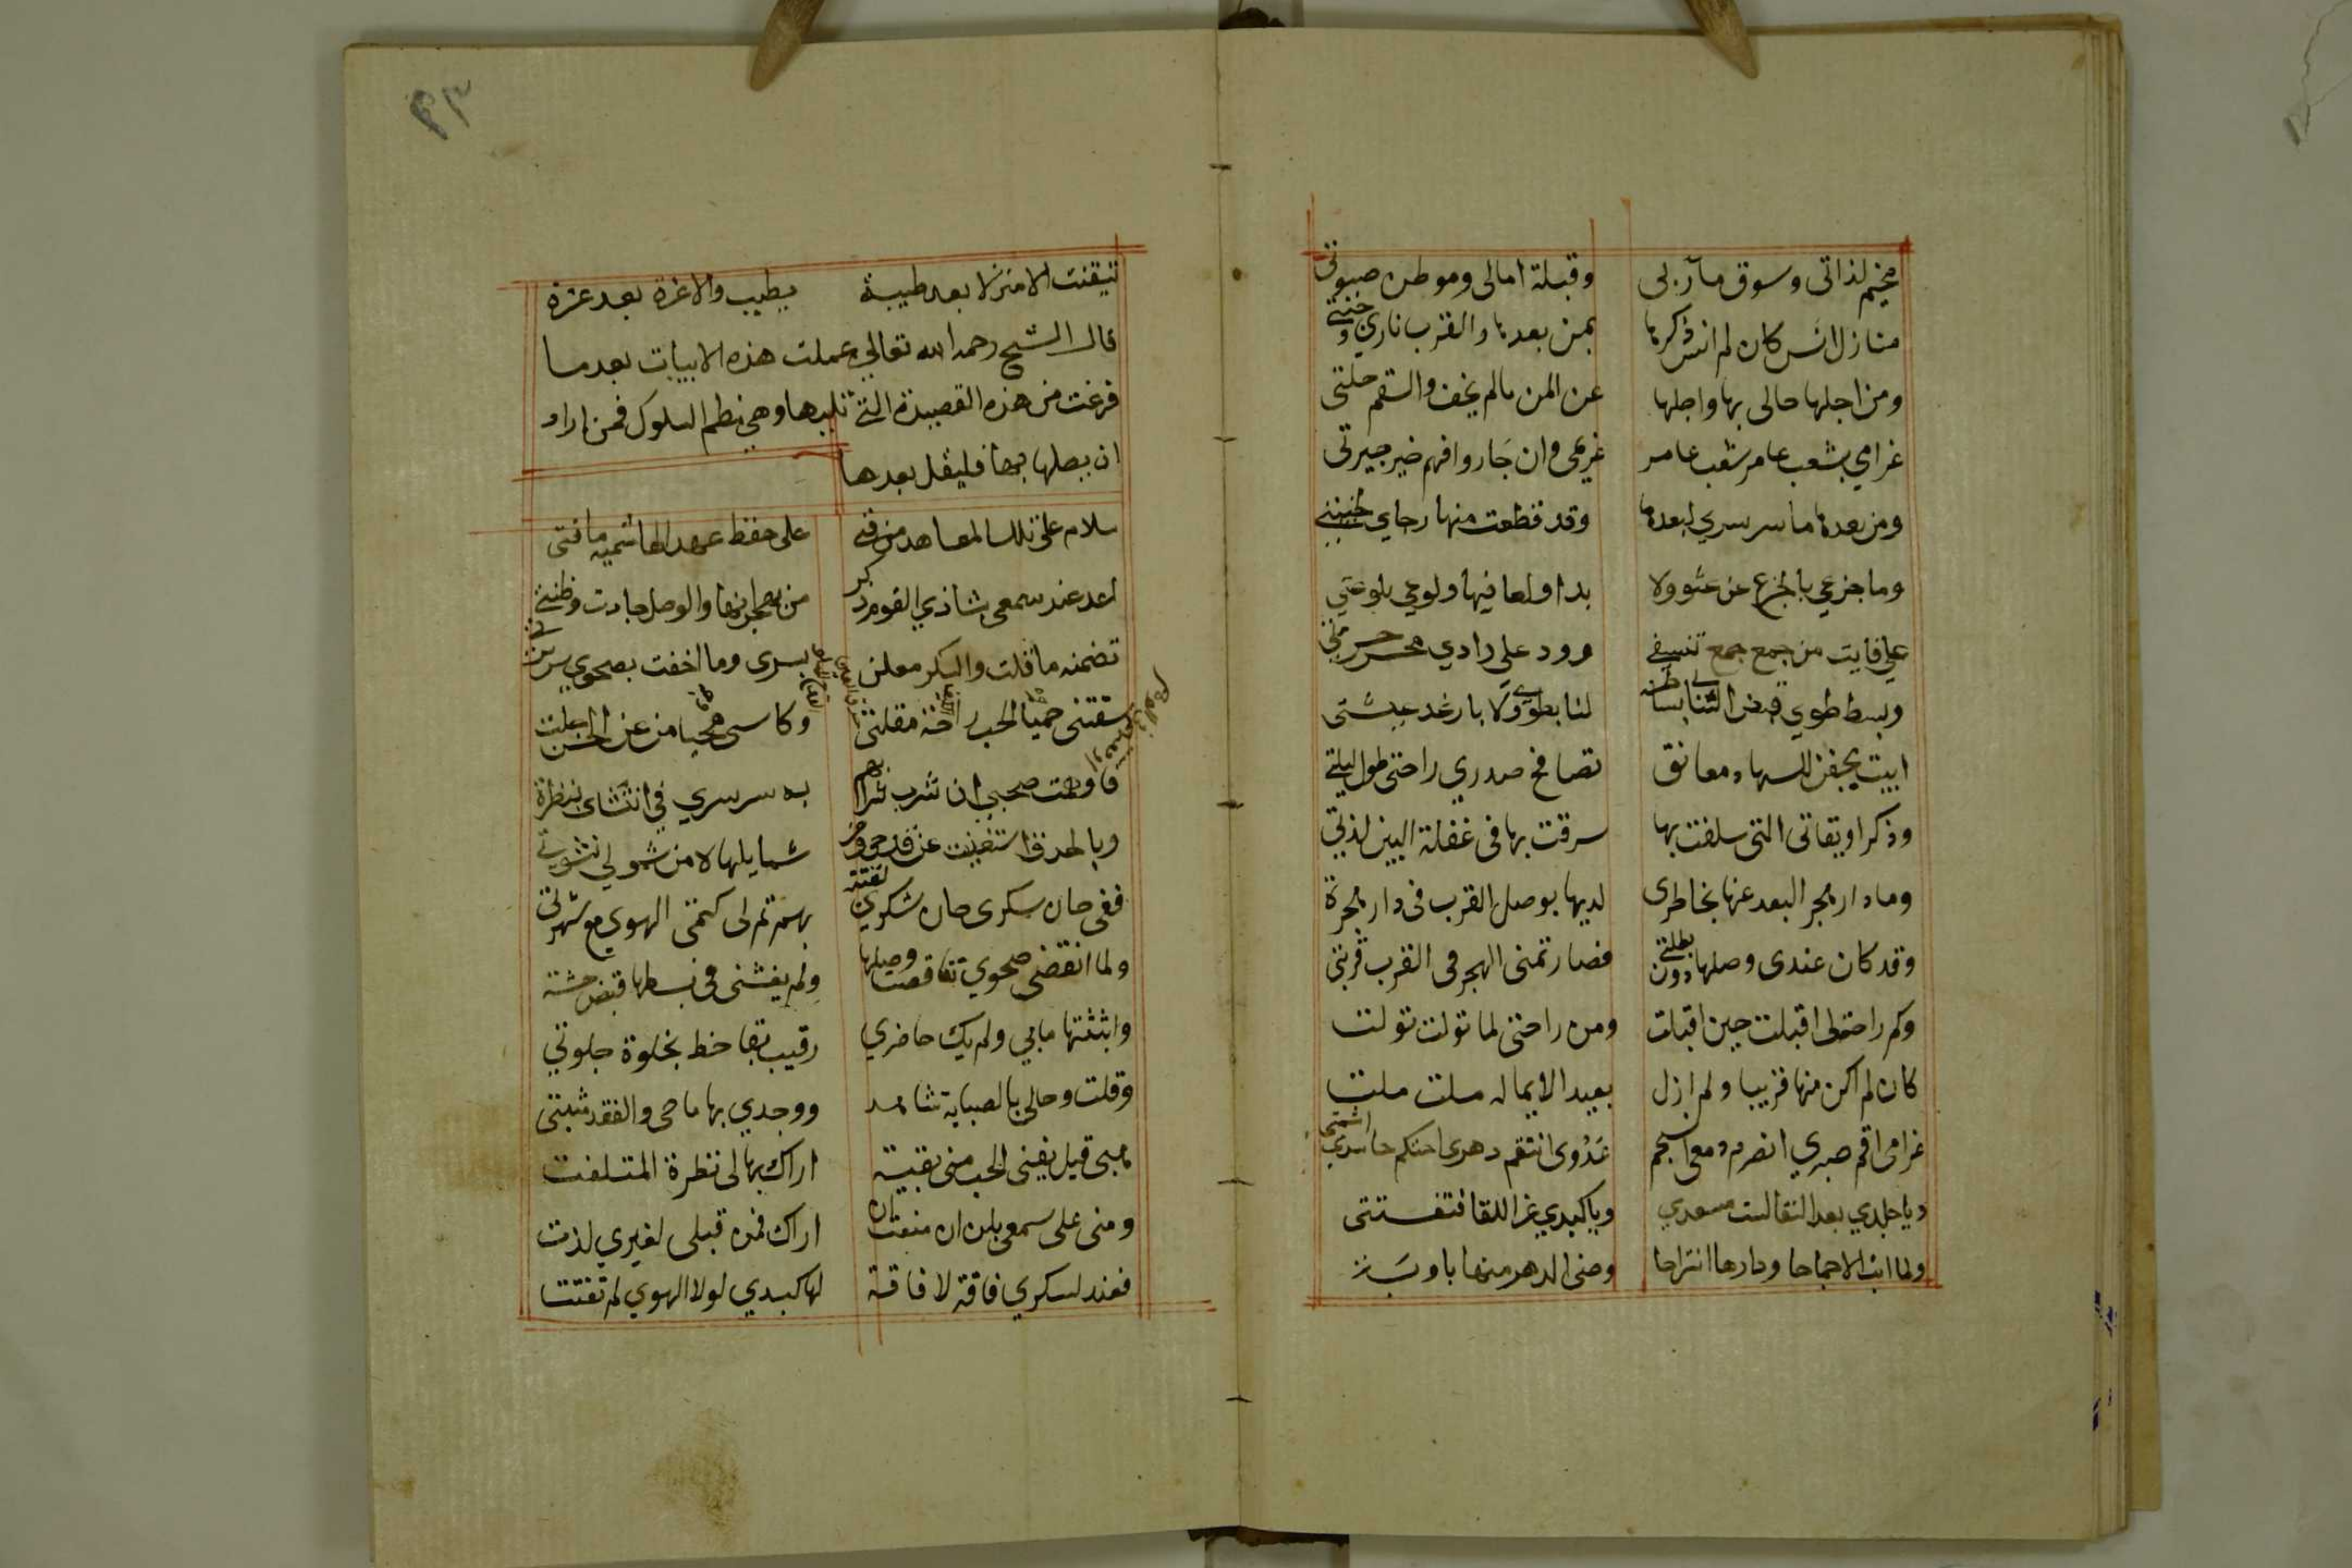 مخيم لذاتى وسوق مآربى وقبلة امالى وموطن صبوتى
منازل انس كان لم انس ذكرها بمن بعدها والقرب نارى وجنتى
ومن اجلها حالى بها واجلها عن المن مالم يخف والسقم حلتى
غرامي بشعب عامر شعب عامر غريمى وان جاروا فهم خير جيرتى
ومن بعدها ما سر سري لبعدها وقد قطعت منها رجاي بخيبتي
وما جزعي بالجزع عن عبث ولا بدا ولعا فيها ولوعي بلوعتي
على فايت من جمع جمع تاسفي وود علي وادي محسر حسرتي
وبسط طوي قبض التنائي بساطه لنا بطوي ولا بارغد عيشتى
ابيت بجفن للسهاد معانق تصافح صدري راحتى طول ليلتي
وذكر اويقاتى التى سلفت بها سرقت بها فى غفلة البين لذتي
وما دار هجر البعد عنها بخاطرى لديها بوصل القرب فى دار هجرة
وقد كان عندى وصلها دون مطلبي فصار تمنى الهجر فى القرب قربتى
وكم راحة لى اقبلت حين اقبلت ومن راحتى لما تولت تولت
كان لم اكن منها قريبا ولم ازل بعيدا لايما له ملت ملت
غرامى اقم صبري انصرم دمعى انسجم عدوى انتقم دهرى احتكم حاسدي اشمت
ويا جلدي بعد النقا لست مسعدي ويا كبدي عز اللقا فتفتتى
ولما ابت الا جماحا ودارها انتزاحا وضن الدهر منها باوبة
٣٩
تيقنت الا منزلا بعد طيبة يطيب والا عزة بعد عزة
قال الشيخ رحمه الله تعالي عملت هذه الابيات بعد ما
فرغت من هذه القصيدة التي تليها وهي نظم السلوك فمن اراد
ان يصلها بها فليقل بعدها
سلام على تلك المعاهد من فتى على حفظ عهد العامرية ما فتى
اعد عند سمعى شادي القوم ذكر من بهجرانها والوصل جادت وضنت
تضمنه ما قلت والسكر معلن لسرى وما اخفت بصحوي سريرتي
سقتنى حميا الحب راحة مقلتى وكاسى محيا من عن الحسن جلت
فاوهمت صحبى ان شرب شرابهم به سر سري في انتشائ بنظرة
وبالحدق استغنيت عن قدحى ومن شمايلها لا من شمولي نشوتي
ففى حان سكرى حان شكري لفتية بهم تم لى كتمى الهوي مع شهرتى
ولما انقضى صحوي تقاضيت وصلها ولم يغشنى فى بسطها قبض خشية
وابثثتها مابي ولم يك حاضري رقيب بقا حظ بخلوة جلوتي
وقلت وحالى بالصبابة شاهد ووجدي بها ماحى والفقد مثبتى
هبى قبل يفنى الحب منى بقية اراك بها لى نظرة المتلفت
ومنى على سمعى بلن ان منعت ان اراك فمن قبلى لغيري لذت
فعندي لسكري فاقة لافاقة لها كبدي لولا الهوي لم تفتت